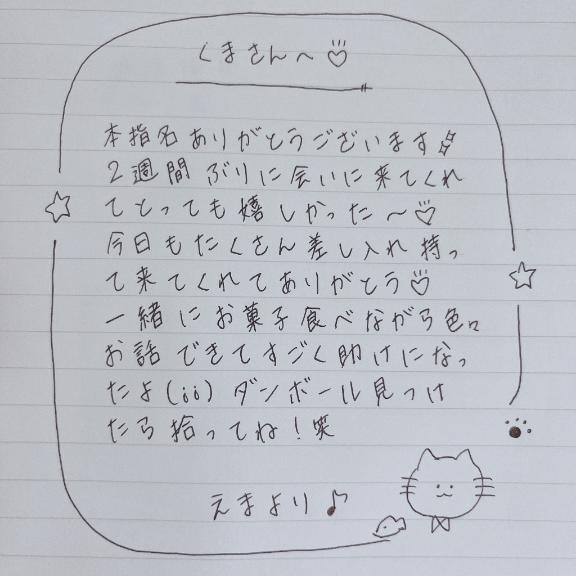 くまさんへ♡
本指名ありがとうございます
2週間ぶりに会いに来てくれ
てとっても嬉しかった〜♡
今日もたくさん差し入れ持っ
て来てくれてありがとう♡
一緒にお菓子食べながら色々
お話できてすごく助けになっ
たよ(;;)ダンボール見つけ
たら拾ってね!笑
えまより♪